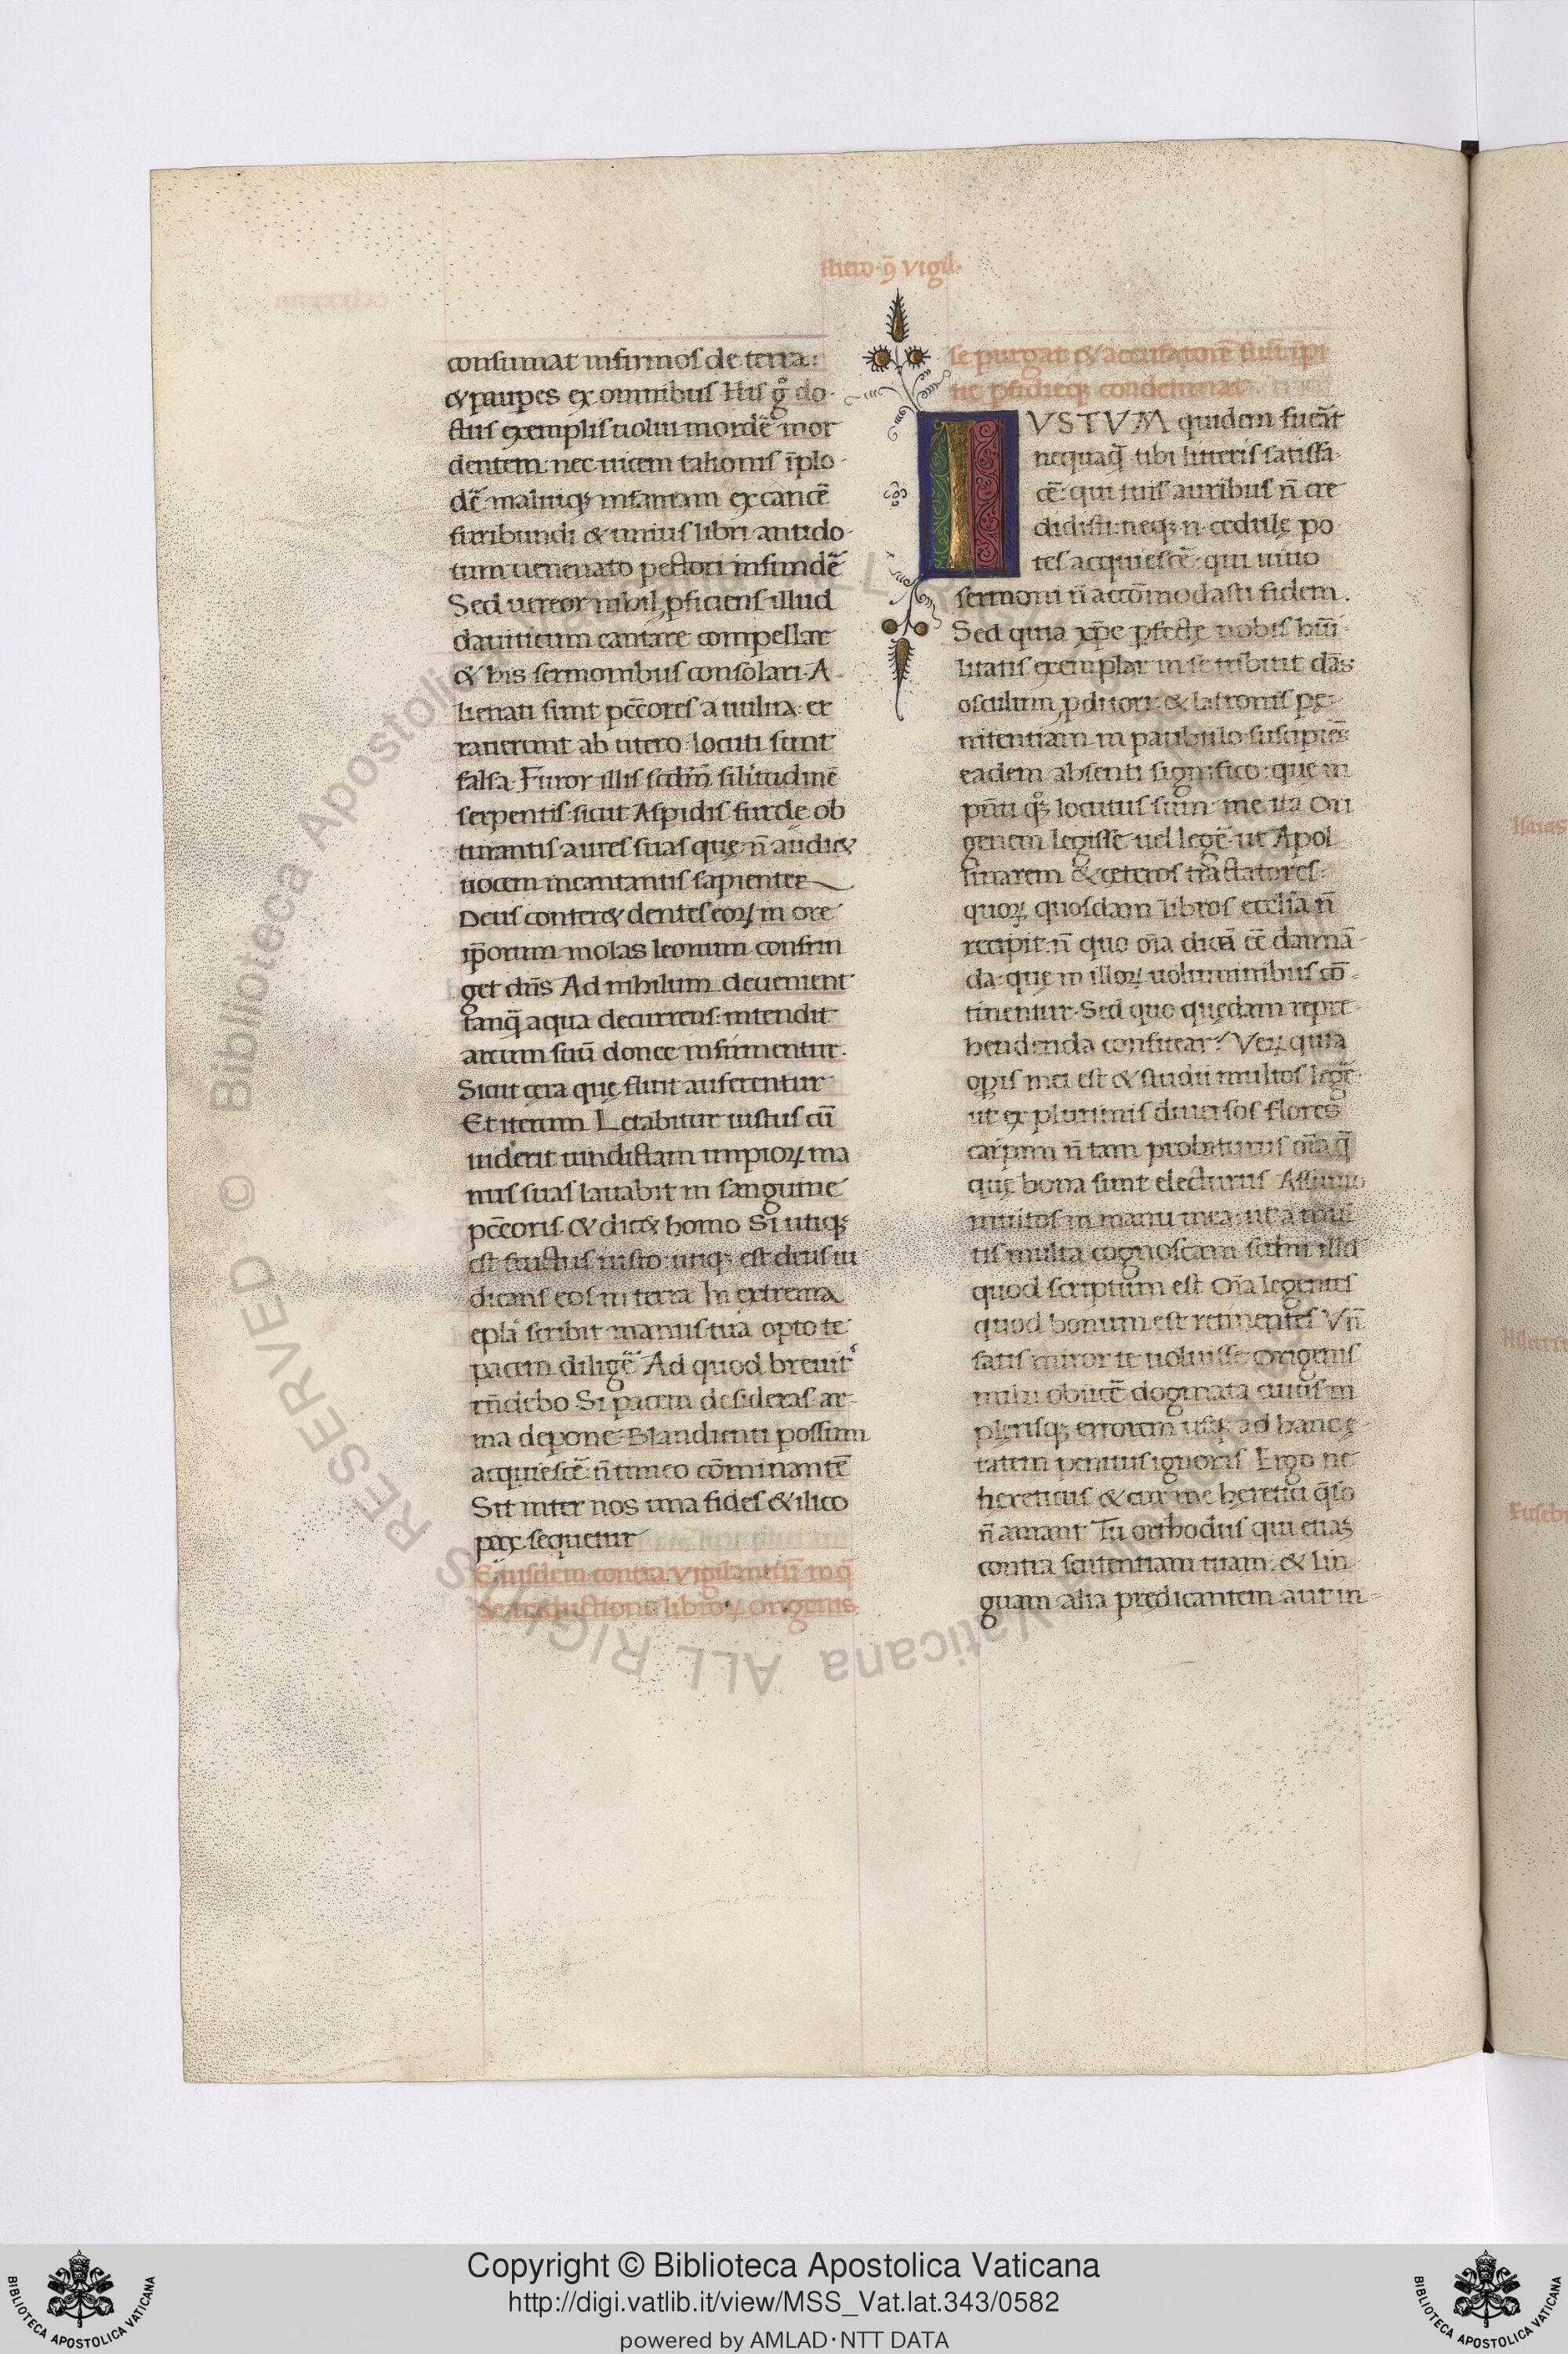 Hiero · ꝯ̄ vigil·
consumat infirmos de terra:
& paup̲es ex omnibus His g̊ do-
ctus exemplis nolui mordē mor
dentem: nec uicem talionis īplo-
dē maluiq; insaniam excancē
furibundi & unius libri antido-
tum uenenato pectori infundē
Sed uereor nihil ꝓficiens illud
dauiticum cantare compellar
& his sermonibus consolari · A-
lienati sunt pc̄cores a uulua: er
rauerunt ab utero locuti sunt
falsa · Furor illis scdm̄ silitudinē
serpentis · sicut Aspidis surdę ob
turantis aures suas quę n̄ audi&
uocem incantantis sapienter
Deus conter& dentes eoꝝ in ore
ip̄orum molas leonum confrin
get dn̄s Ad nihilum deuenient
tanq̄ aqua decurrens: intendit
arcum suū donec infirmentur.
Sicut cęra quę fluit auferentur
Et iterum Letabitur iustus cū
uiderit uindictam impioꝝ ma
nus suas lauabit in sanguine
pc̄coris & dic& homo Si utiq;
est fructus iusto: utiq; est deus iu
dicans eos in terra In extrema
epl̄a scribit manus tua opto te
pacem diligē Ad quod breuit᷑
rn̄debo Si pacem desideras ar-
ma depone Blandienti possum
acquiescē: n̄ timeo cōminantē
Sit inter nos una fides & ilico
pax sequetur
Eiusdem contra Vigilantiū in q̄
de traductione libroꝝ origenis
se purgat & accusatorē suū īpi
ue ꝑfidieq; condemnat
IVSTVM quidem fuēat
nequaq̄ tibi litteris satisfa-
cē: qui tuis auribus n̄ cre
didisti: neq; n. cedulę po
tes acquiescē · qui uiuo
sermoni n̄ accōmodasti fidem.
Sed quia xp̄c ꝑfectę nobis hūi-
litatis exemplar in se tribuit dās
osculum ꝓditori: & latronis pę-
nitentiam in patibulo suscipiēs
eadem absenti significo: quę in
pn̄ti q°; locutus sum: me ita Ori
genem legisse uel legē ut Apol
linarem & cęteros tractatores:
quoꝝ quosdam libros ecclīa n̄
recipit: n̄ quo oīa dicā ēē damnā-
da: quę in illoꝝ uoluminibus cō-
tinentur · Sed quo quędam repre-
hendenda confitear: Veꝝ quia
op̲is mei est & studii multos legē:
ut ex plurimis diuersos flores
carpam n̄ tam probaturus oīa q̄
quę bona sunt electurus Assumo
multos in manu mea: ut a mul
tis multa cognoscam scdm̄ illd
quod scriptum est Oīa legentes
quod bonum est retinentes Vn̄
satis miror te uoluisse origenis
mihi obiicē dogmata cuius in
plerisq; errorem usq; ad hanc ę-
tatem penitus ignoris Ergo ne
hereticus & cur me heretici q̄so
n̄ amant Tu orthodus qui etiaʒ
contra sententiam tuam: & lin-
guam alia prędicantem aut in-
Isaias
Euseb
Copyright © Biblioteca Apostolica Vaticana
http://digi.vatlib.it/view/MSS_Vat.lat.343/0582
powered by AMLAD·NTT DATA
BIBLIOTECA APOSTOLICA VATICANA
BIBLIOTECA APOSTOLICA VATICANA
© Biblioteca Apostolica Vaticana ALL RIGHTS RESERVED